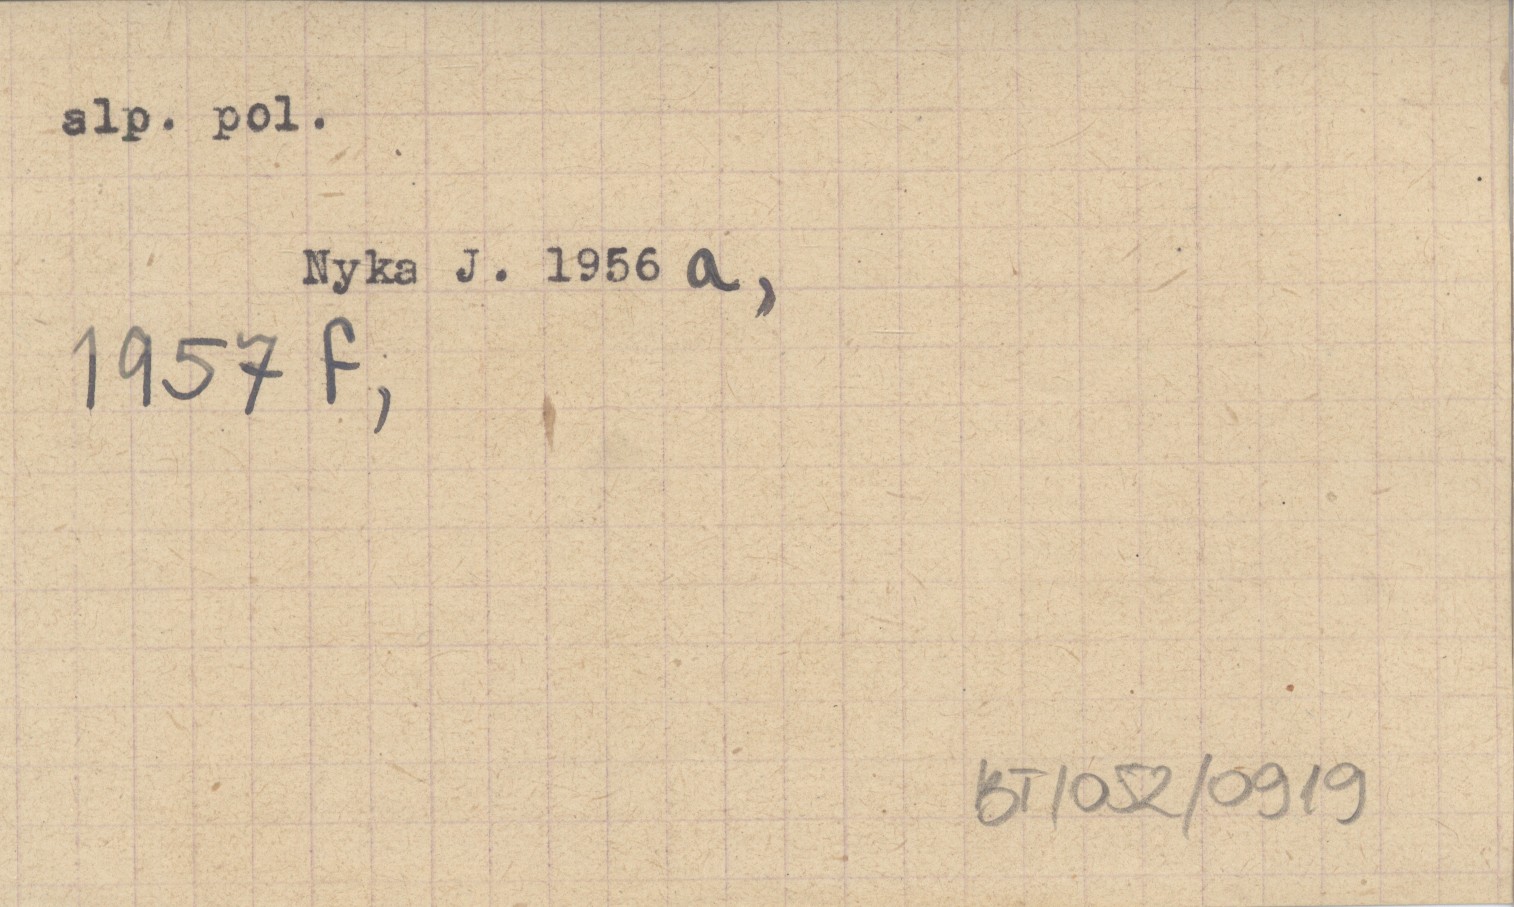 alp. pol.
Nyka J. 1956 a,
1957 f,
BT/052/0919